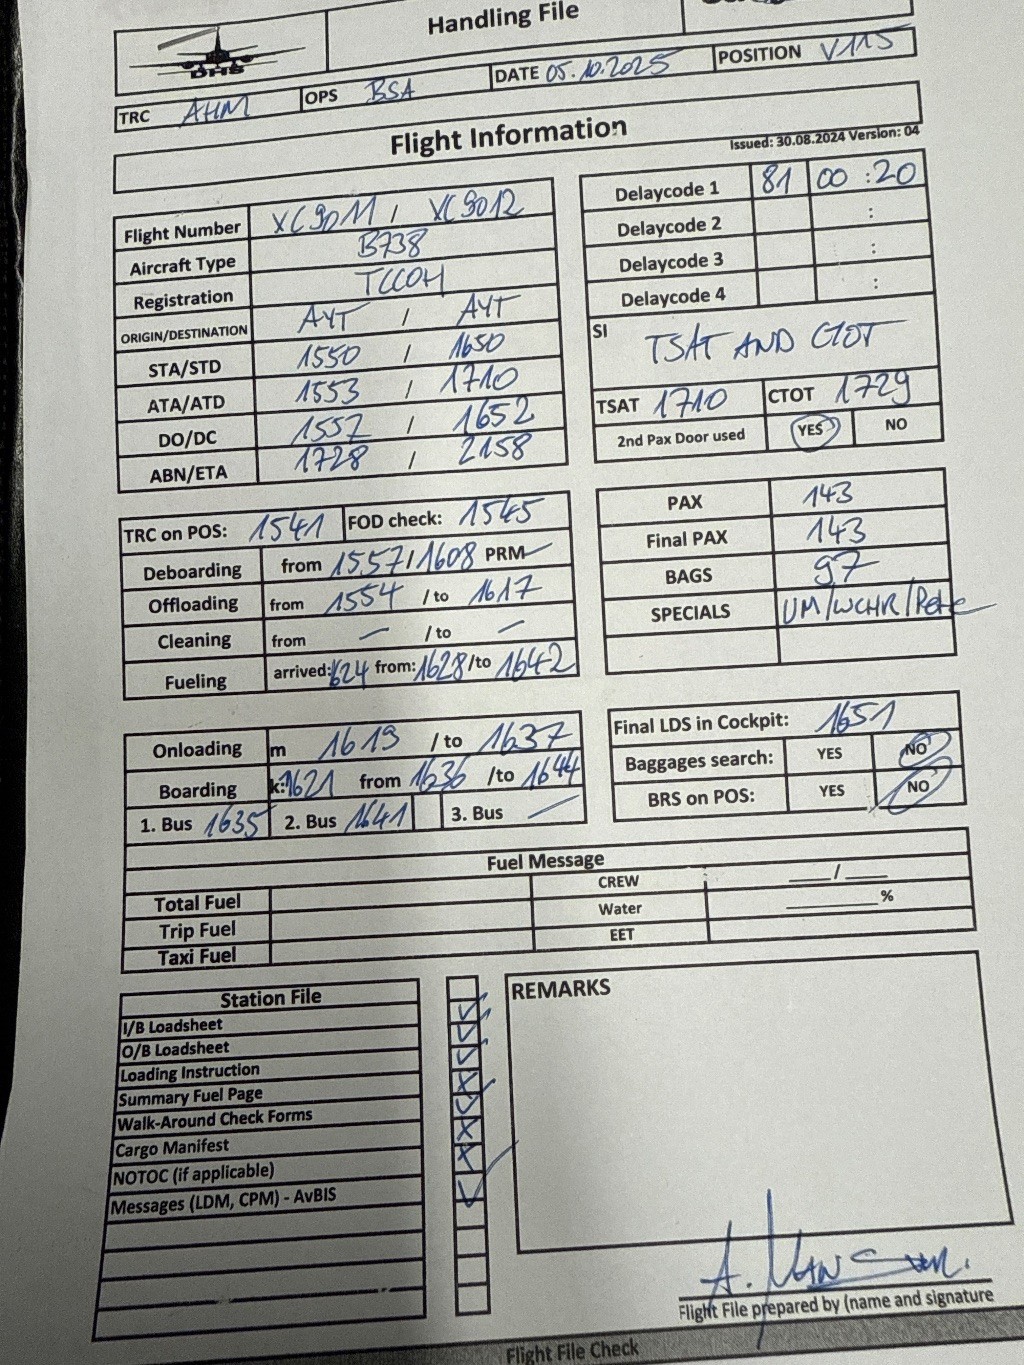 Handling File
DHS
TRC AHM OPS BSA DATE 05.10.2025 POSITION V115
Flight Information
Issued: 30.08.2024 Version: 04
Flight Number XC9011 / XC9012
Aircraft Type B738
Registration TCCOH
ORIGIN/DESTINATION AYT / AYT
STA/STD 1550 / 1650
ATA/ATD 1553 / 1710
DO/DC 1557 / 1652
ABN/ETA 1728 / 2158
Delaycode 1 81 00 : 20
Delaycode 2 :
Delaycode 3 :
Delaycode 4 :
SI TSAT AND CTOT
TSAT 1710 CTOT 1729
2nd Pax Door used YES NO
TRC on POS: 1541 FOD check: 1545
Deboarding from 1557 / 1608 PRM
Offloading from 1554 / to 1617
Cleaning from — / to —
Fueling arrived: 1624 from: 1628 /to 1642
PAX 143
Final PAX 143
BAGS 97
SPECIALS UM/WCHR/
Onloading m 1619 / to 1637
Boarding k: 1621 from 1636 /to 1644
1. Bus 1635 2. Bus 1641 3. Bus —
Final LDS in Cockpit: 1651
Baggages search: YES NO
BRS on POS: YES NO
Fuel Message
Total Fuel CREW ____/____
Trip Fuel Water ________%
Taxi Fuel EET
Station File
I/B Loadsheet
O/B Loadsheet
Loading Instruction
Summary Fuel Page
Walk-Around Check Forms
Cargo Manifest
NOTOC (if applicable)
Messages (LDM, CPM) - AvBIS
REMARKS
Flight File prepared by (name and signature
Flight File Check